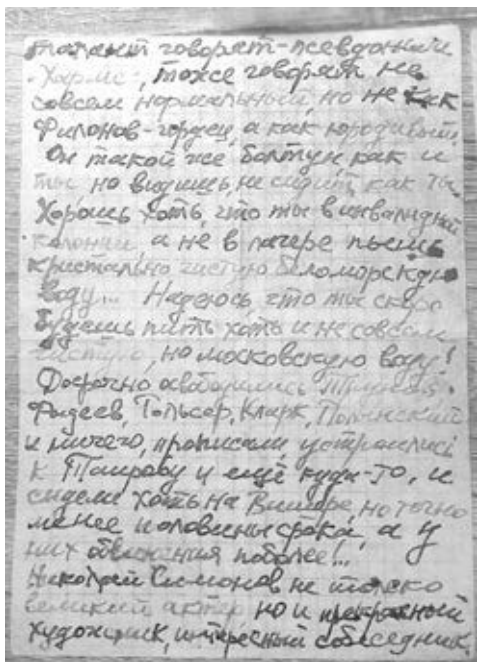 талант говорят-псевдоним
"Хармс", тоже говорят не
совсем нормальный, но не как
Филонов-гордец, а как юродивый.
Он такой же болтун, как и
ты но видишь, не сидит, как ты.
Хорошь хоть, что ты в инвалидной
колонии, а не в лагере пьёшь
кристально чистую беломорскую
воду... Надеюсь, что ты скоро
будешь пить хоть и не совсем
чистую, но московскую воду!
Досрочно освободились
Фадеев, Гольсор, Кларк, Полянский
и ничего, прописали, устроились
к Таирову и ещё куда-то, и
сидели хоть на Вишере, но точно
менее половины срока, а у
них обвинения поболее!..
Николай Симонов не только
великий актер, но и прекрасный
художник, интересный собеседник.